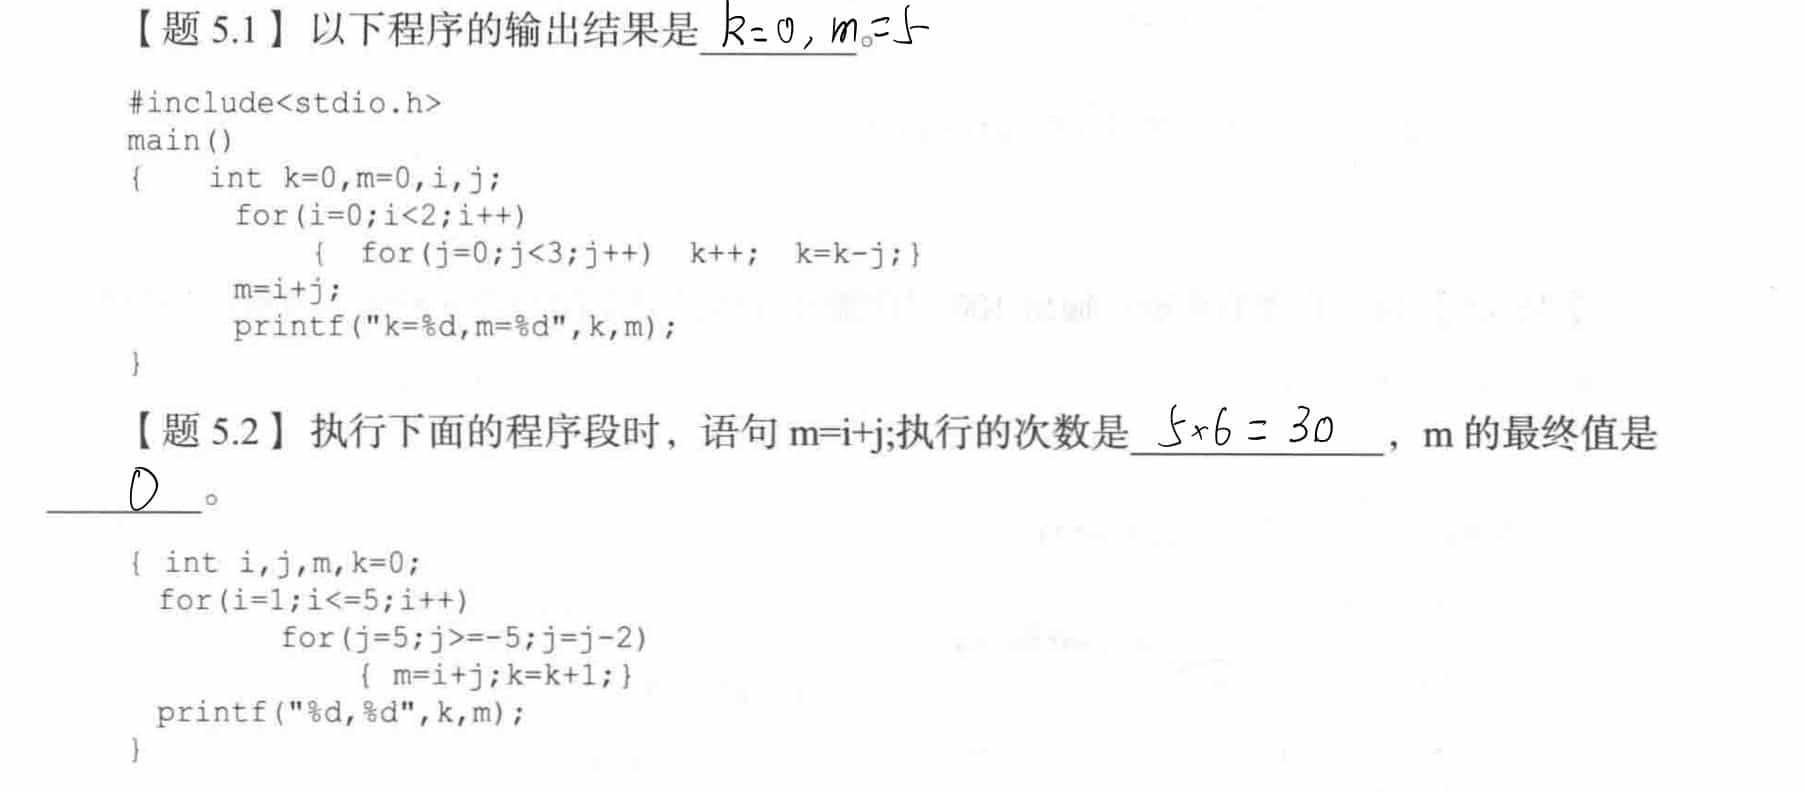 【题 5.1】以下程序的输出结果是 k=0, m=5。
#include<stdio.h>
main()
{ int k=0,m=0,i,j;
for(i=0;i<2;i++)
{ for(j=0;j<3;j++) k++; k=k-j;}
m=i+j;
printf("k=%d,m=%d",k,m);
}
【题 5.2】执行下面的程序段时，语句 m=i+j;执行的次数是 5×6=30 ，m 的最终值是
0 。
{ int i,j,m,k=0;
for(i=1;i<=5;i++)
for(j=5;j>=-5;j=j-2)
{ m=i+j;k=k+1;}
printf("%d,%d",k,m);
}